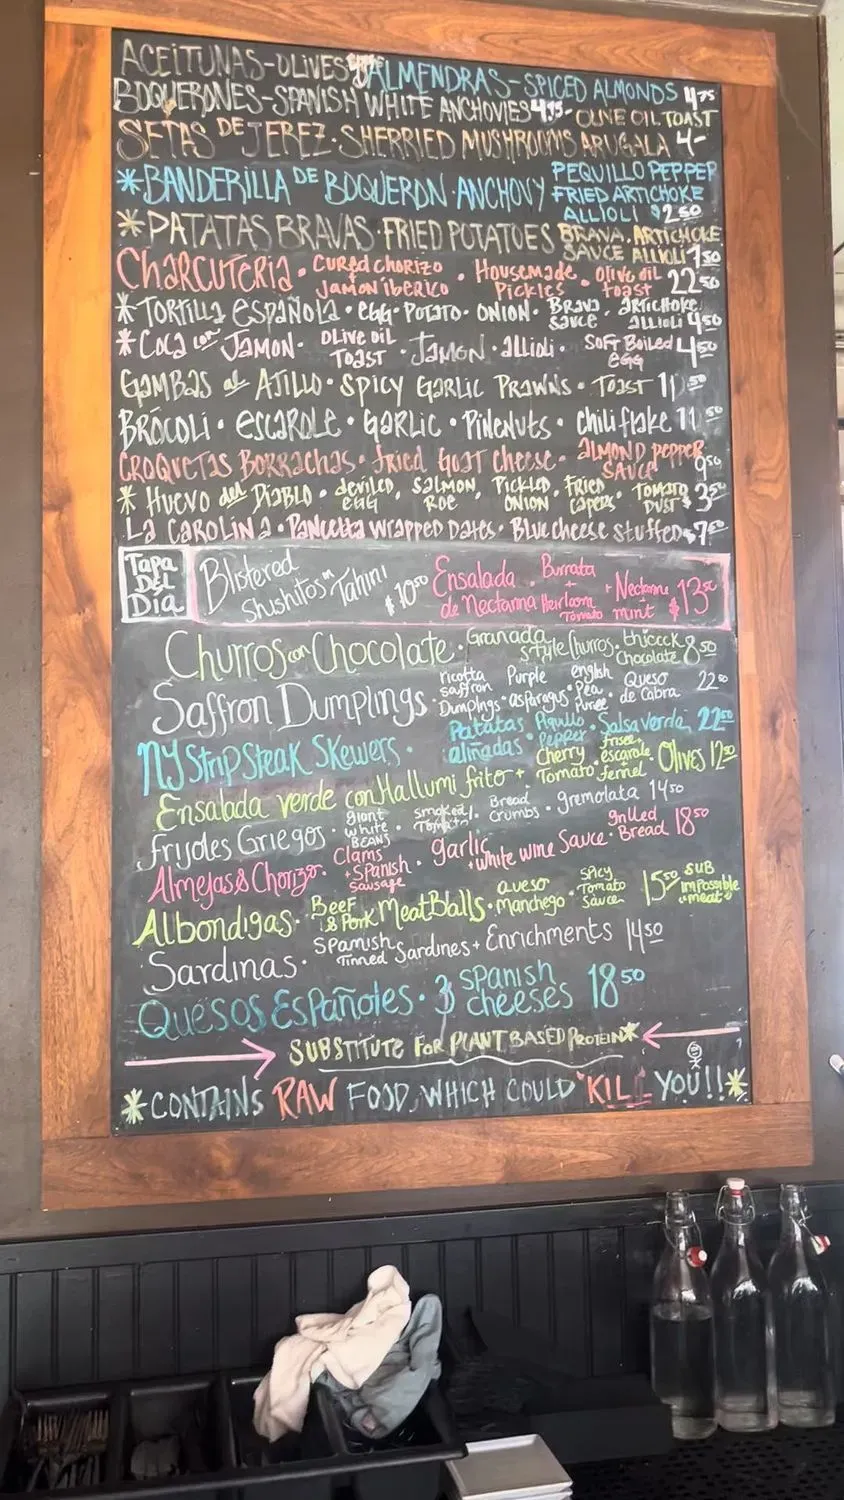 ACEITUNAS-OLIVES ALMENDRAS-SPICED ALMONDS 4 75
BOQUERONES-SPANISH WHITE ANCHOVIES 4.95- OLIVE OIL TOAST
SETAS DE JEREZ · SHERRIED MUSHROOMS ARUGALA 4-
*BANDERILLA DE BOQUERON ANCHOVY PEQUILLO PEPPER
FRIED ARTICHOKE
ALLIOLI $2 50
*PATATAS BRAVAS · FRIED POTATOES BRAVA · ARTICHOKE
SAUCE ALLIOLI 7 50
CHARCUTERIA · CURED CHORIZO + JAMON IBERICO · HOUSEMADE PICKLES · OLIVE OIL TOAST 22 50
*TORTILLA ESPAÑOLA · EGG · POTATO · ONION · BRAVA SAUCE · ARTICHOKE ALLIOLI 4 50
*COCA con JAMON · OLIVE OIL TOAST · JAMON · ALLIOLI · SOFT BOILED EGG 4 50
GAMBAS al AJILLO · SPICY GARLIC PRAWNS · TOAST 11 50
BRÓCOLI · ESCAROLE · GARLIC · PINENUTS · CHILI FLAKE 11 50
CROQUETAS BORRACHAS · FRIED GOAT CHEESE · ALMOND PEPPER SAUCE 9 50
* HUEVO del DIABLO · DEVILED EGG · SALMON ROE · PICKLED ONION · FRIED CAPERS · TOMATO DUST $3 50
LA CAROLINA · PANCETTA WRAPPED DATES · BLUE CHEESE STUFFED $7 50
TAPA DEL DIA
Blistered Shishitos in Tahini $10 50
Ensalada de Nectarina · Burrata + Heirloom Tomato + Nectarine + mint $13 50
Churros con Chocolate · Granada Style Churros · thiccck Chocolate 8 50
Saffron Dumplings · ricotta saffron Dumplngs · Purple asparagus · english Pea Puree · Queso de Cabra 22 50
NY Strip Steak Skewers · Patatas aliñadas · Piquillo Pepper · Salsa verde 22 50
Ensalada verde con Hallumi frito + Cherry Tomato · frisee + escarole fennel · Olives 12 50
frijoles Griegos · giant white BEANS · smoked Tomato · Bread crumbs · gremolata 14 50
Almejas & Chorizo · Clams + Spanish Sausage · garlic + white wine Sauce · grilled Bread 18 50
Albondigas · Beef & Pork MeatBalls · queso manchego · Spicy Tomato Sauce 15 50 SUB impossible "meat"
Sardinas · Spanish Tinned Sardines + Enrichments 14 50
Quesos Españoles · 3 Spanish cheeses 18 50
SUBSTITUTE FOR PLANT BASED PROTEIN*
*CONTAINS RAW FOOD, WHICH COULD "KILL YOU!!*